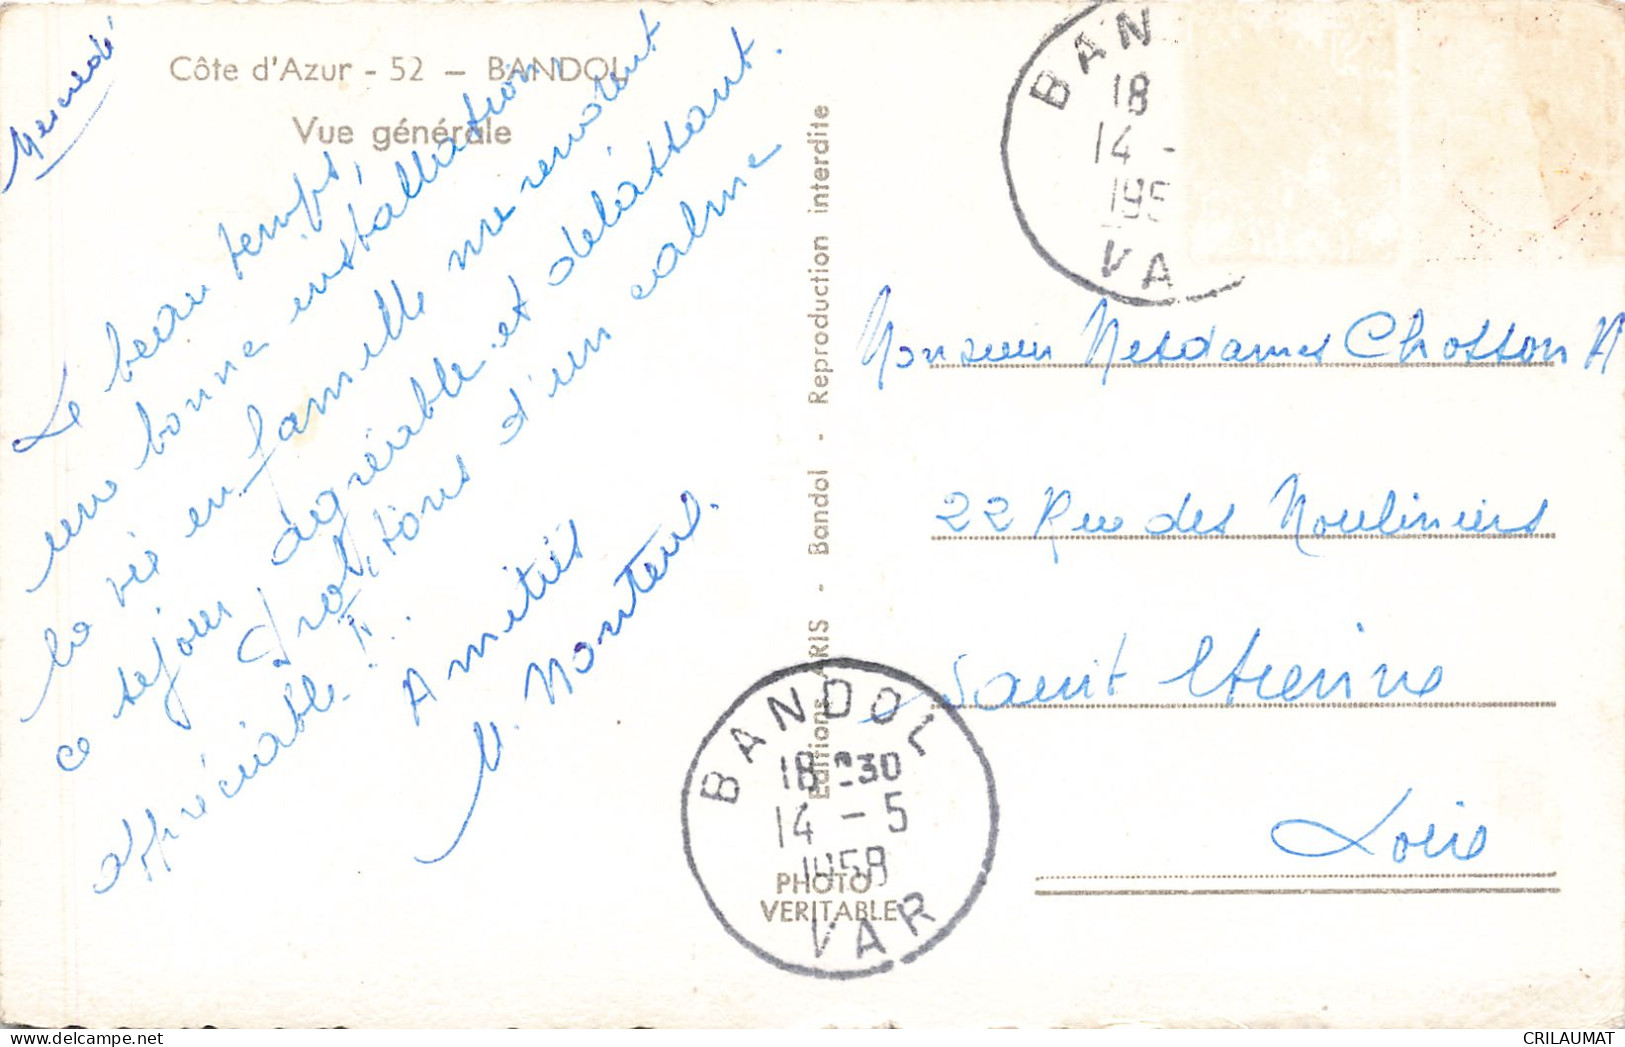 Côte d'Azur - 52 - BANDOL
Vue générale
Mercredi
Le beau temps,
une bonne installation,
la vie en famille me rendent
ce séjour agréable et délassant.
profitons d'un calme
appréciable!!...
Amitiés
M. Monteul.
Editions ARIS - Bandol - Reproduction interdite
PHOTO
VERITABLE
BAN
18
14 -
195
VA
BANDOL
18 H30
14 - 5
1958
VAR
Monsieur Mesdames Chosson A
22 Rue des Mouliniers
Saint Etienne
Loire
CRILAUMAT